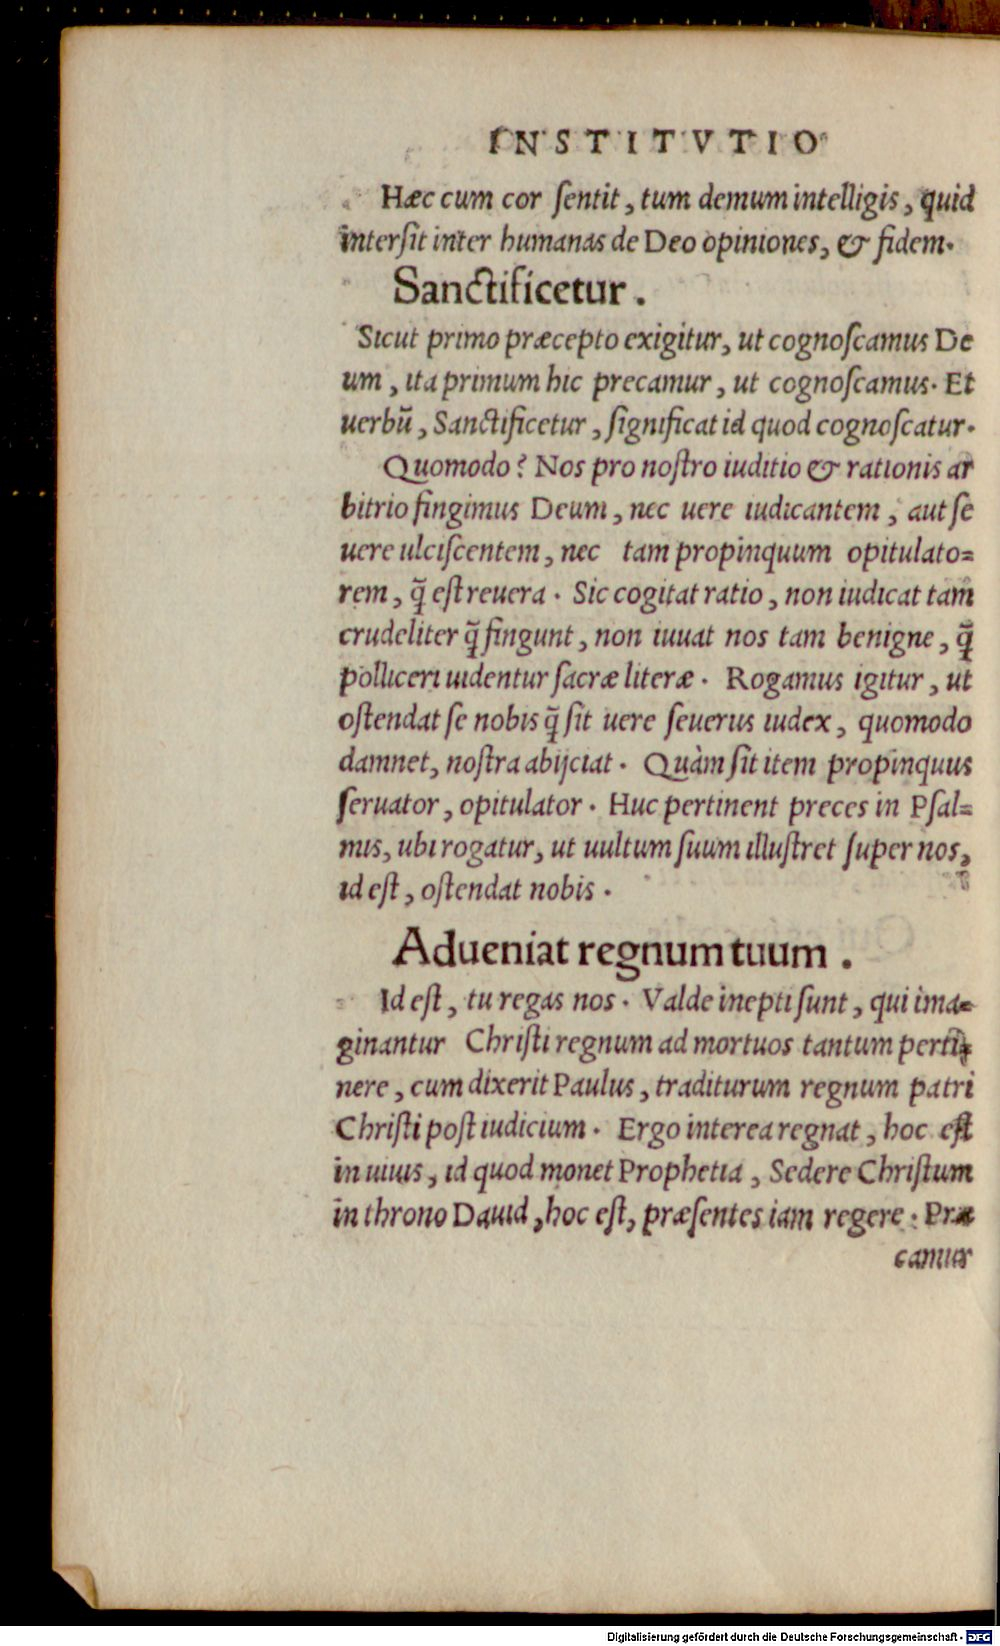 INSTITVTIO
Hæc cum cor ſentit, tum demum intelligis, quid
interſit inter humanas de Deo opiniones, & fidem.
Sanctificetur.
Sicut primo præcepto exigitur, ut cognoſcamus De
um, ita primum hic precamur, ut cognoſcamus. Et
uerbũ, Sanctificetur, ſignificat id quod cognoſcatur.
Quomodo? Nos pro noſtro iuditio & rationis ar
bitrio fingimus Deum, nec uere iudicantem, aut ſe
uere ulciſcentem, nec tam propinquum opitulato=
rem, q̃ eſt reuera. Sic cogitat ratio, non iudicat tam
crudeliter q̃ fingunt, non iuuat nos tam benigne, q̃
polliceri uidentur ſacræ literæ. Rogamus igitur, ut
oſtendat ſe nobis q̃ ſit uere ſeuerus iudex, quomodo
damnet, noſtra abijciat. Quàm ſit item propinquus
ſeruator, opitulator. Huc pertinent preces in Pſal=
mis, ubi rogatur, ut uultum ſuum illuſtret ſuper nos,
id eſt, oſtendat nobis.
Adueniat regnum tuum.
Id eſt, tu regas nos. Valde inepti ſunt, qui ima=
ginantur Chriſti regnum ad mortuos tantum perti=
nere, cum dixerit Paulus, traditurum regnum patri
Chriſti poſt iudicium. Ergo interea regnat, hoc eſt
in uiuis, id quod monet Prophetia, Sedere Chriſtum
in throno Dauid, hoc eſt, præſentes iam regere. Præ
camur
Digitalisierung gefördert durch die Deutsche Forschungsgemeinschaft - DFG